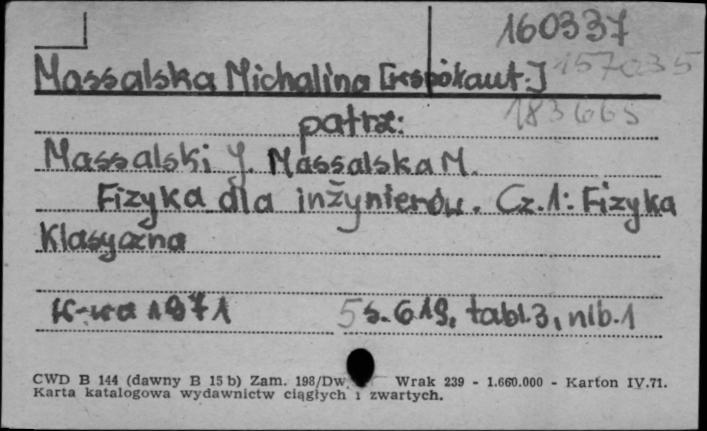 160337
Massalska Michalina [współaut.] 157035
patrz: 183665
Massalski J. Massalska M.
Fizyka dla inżynierów. Cz.1: Fizyka
Klasyczna
W-wa 1971 5 s. 619, tabl. 3, nlb. 1
CWD B 144 (dawny B 15 b) Zam. 198/Dw Wrak 239 - 1.660.000 - Karton IV.71.
Karta katalogowa wydawnictw ciągłych i zwartych.